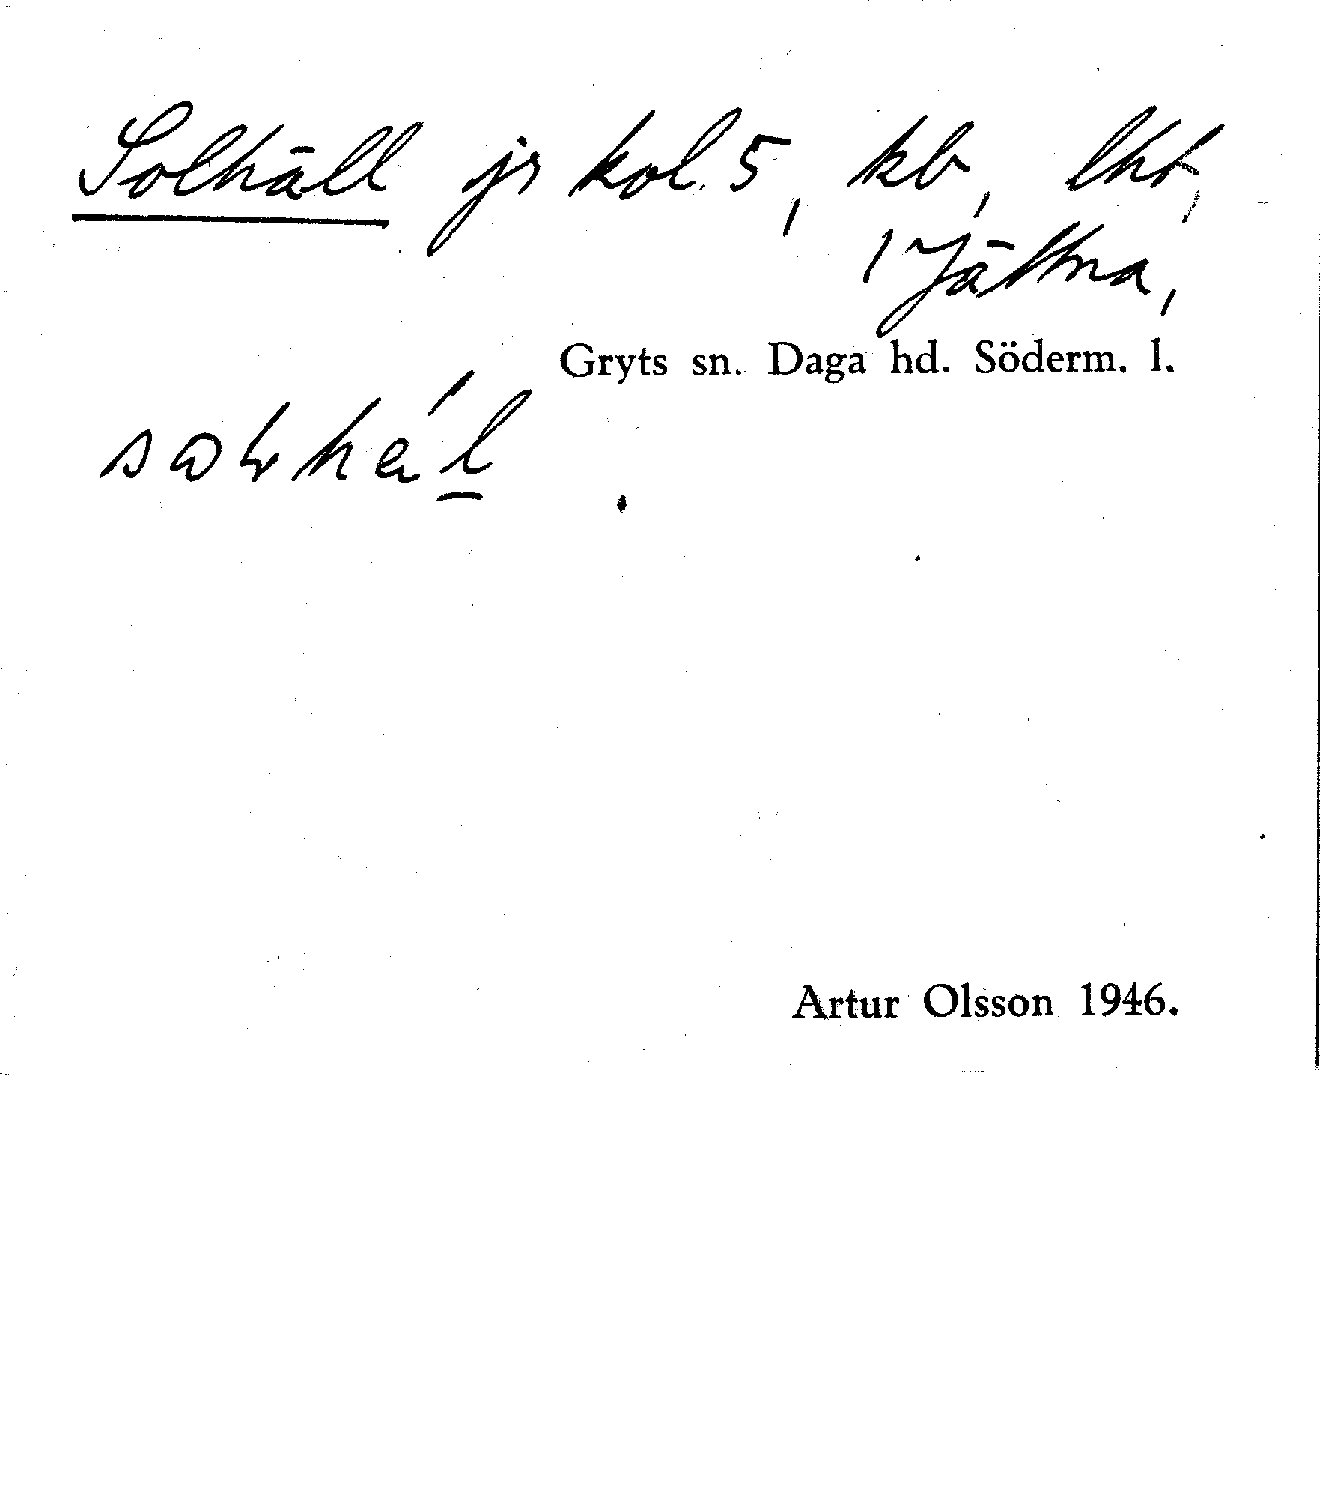 Solhäll jr kol. 5, kb, lht,
Jättna,
Gryts sn. Daga hd. Söderm. l.
Artur Olsson 1946.